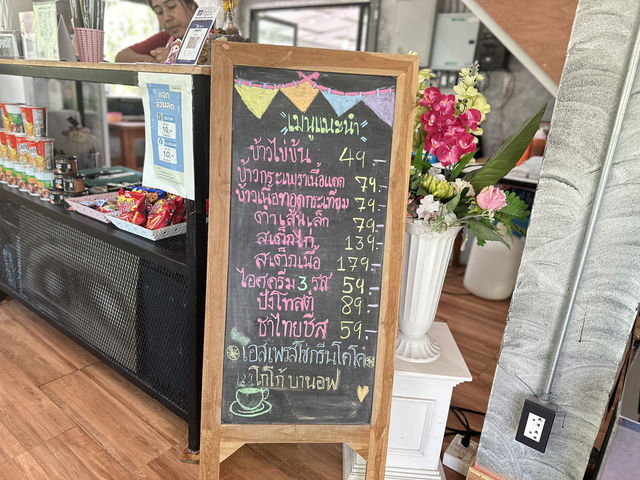 เมนูแนะนำ
ข้าวไข่ข้น 49.-
ข้าวกระเพราเนื้อแดด 79.-
ข้าวเนื้อทอดกระเทียม 79.-
ตำเส้นเล็ก 79.-
สเต็กไก่ 139.-
สเต็กเนื้อ 179.-
ไอศครีม 3 รส 59.-
ปังโทสต์ 89.-
ชาไทยชีส 59.-
เอสเพรสโซ่กรีนโคโค่
โกโก้ บานอฟ
10.-
10.-